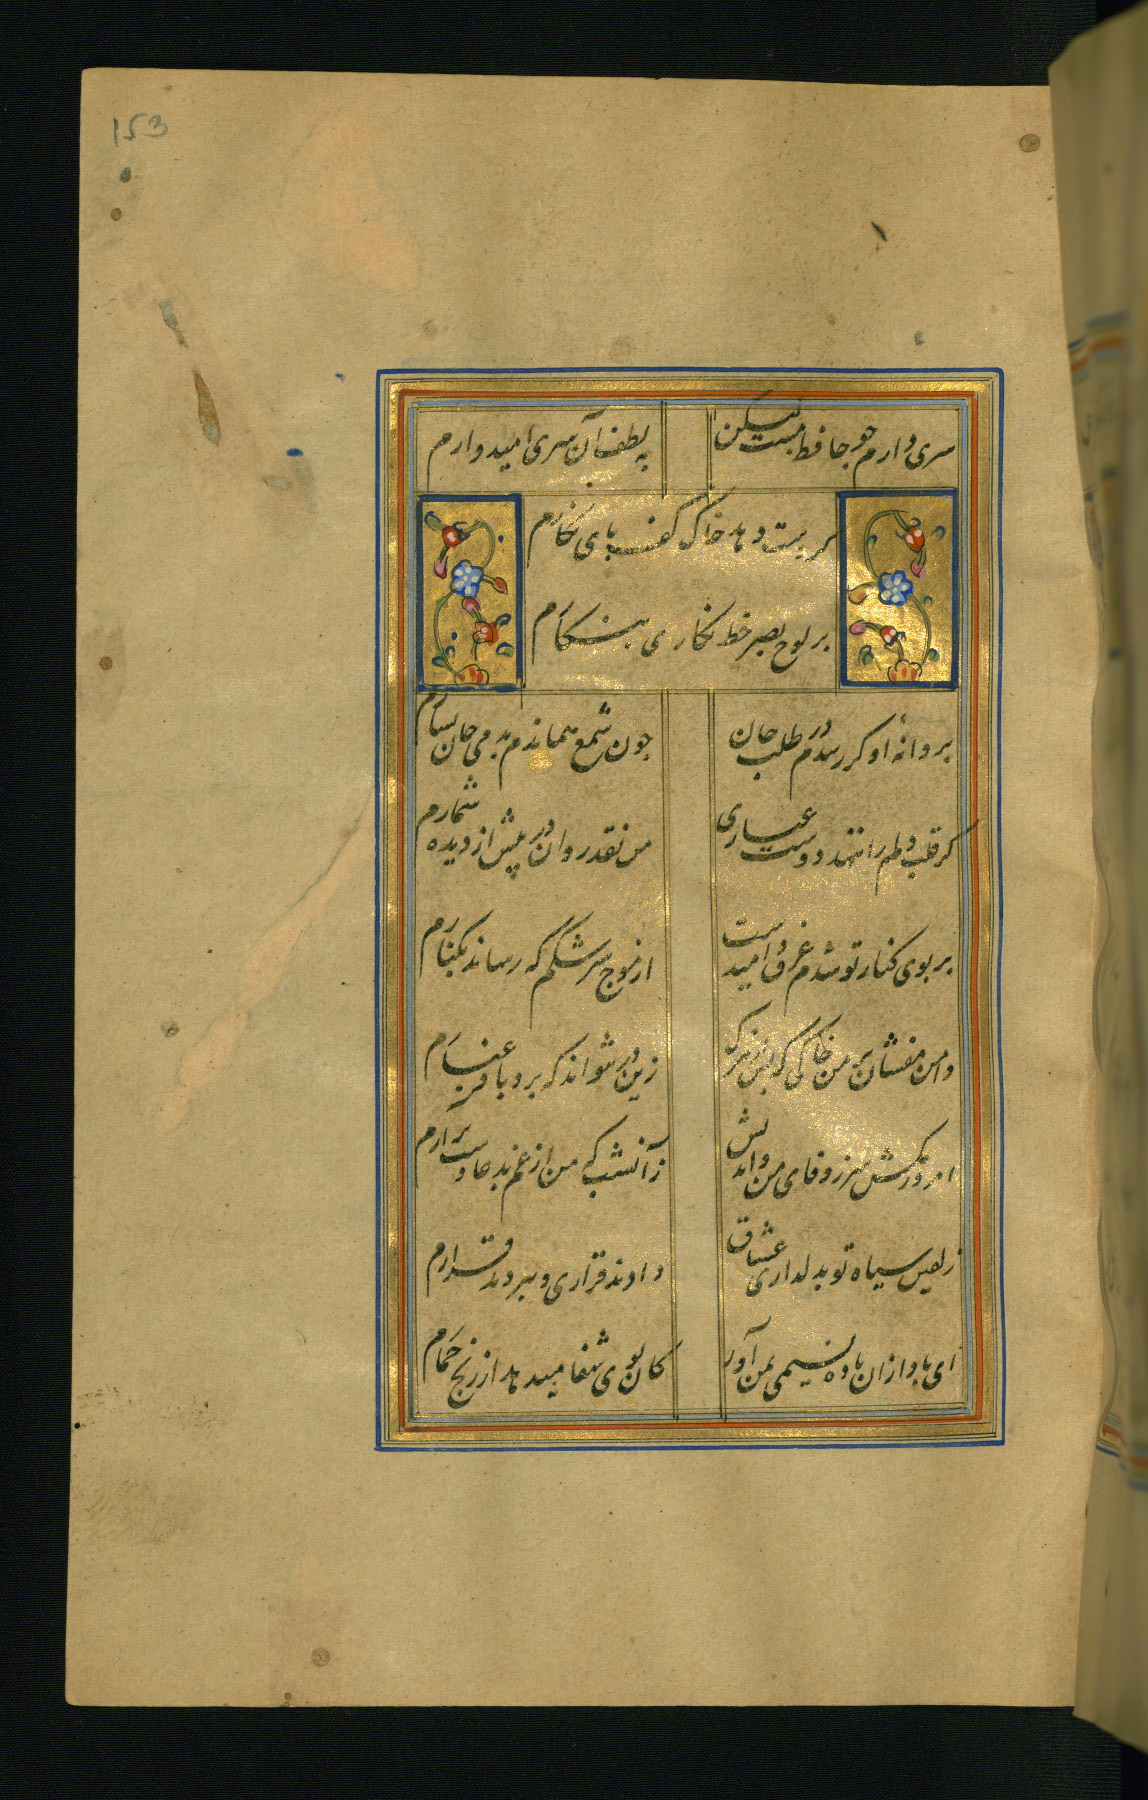 153
سری دارم جو حافظ مست لیکن
بلطف آن سری امیدوارم
کر دست دهد خاک کف بای نکارم
بر لوح بصر خط نکاری بنکارم
بروانهٔ او کر رسدم در طلب جان
جون شمع هماندم بدمی جان بسبارم
کر قلب دلم را ننهد دوست عیاری
من نقد روان در بیش از دیده شمارم
بر بوی کنار تو شدم غرق و امیدست
از موج سرشکم که رساند بکنارم
دامن مفشان بر من خاکی که بس از مرک
زین در نتواند که برد باد غبارم
امروز مکش سر ز وفای من و اندیش
زان شب که من از غم بدعا دست برارم
زلفین سیاه تو بدلداری عشاق
دادند قراری و ببردند قرارم
ای باد ازان باده نسیمی بمن آور
کان بوی شفا میدهد از رنج خمارم